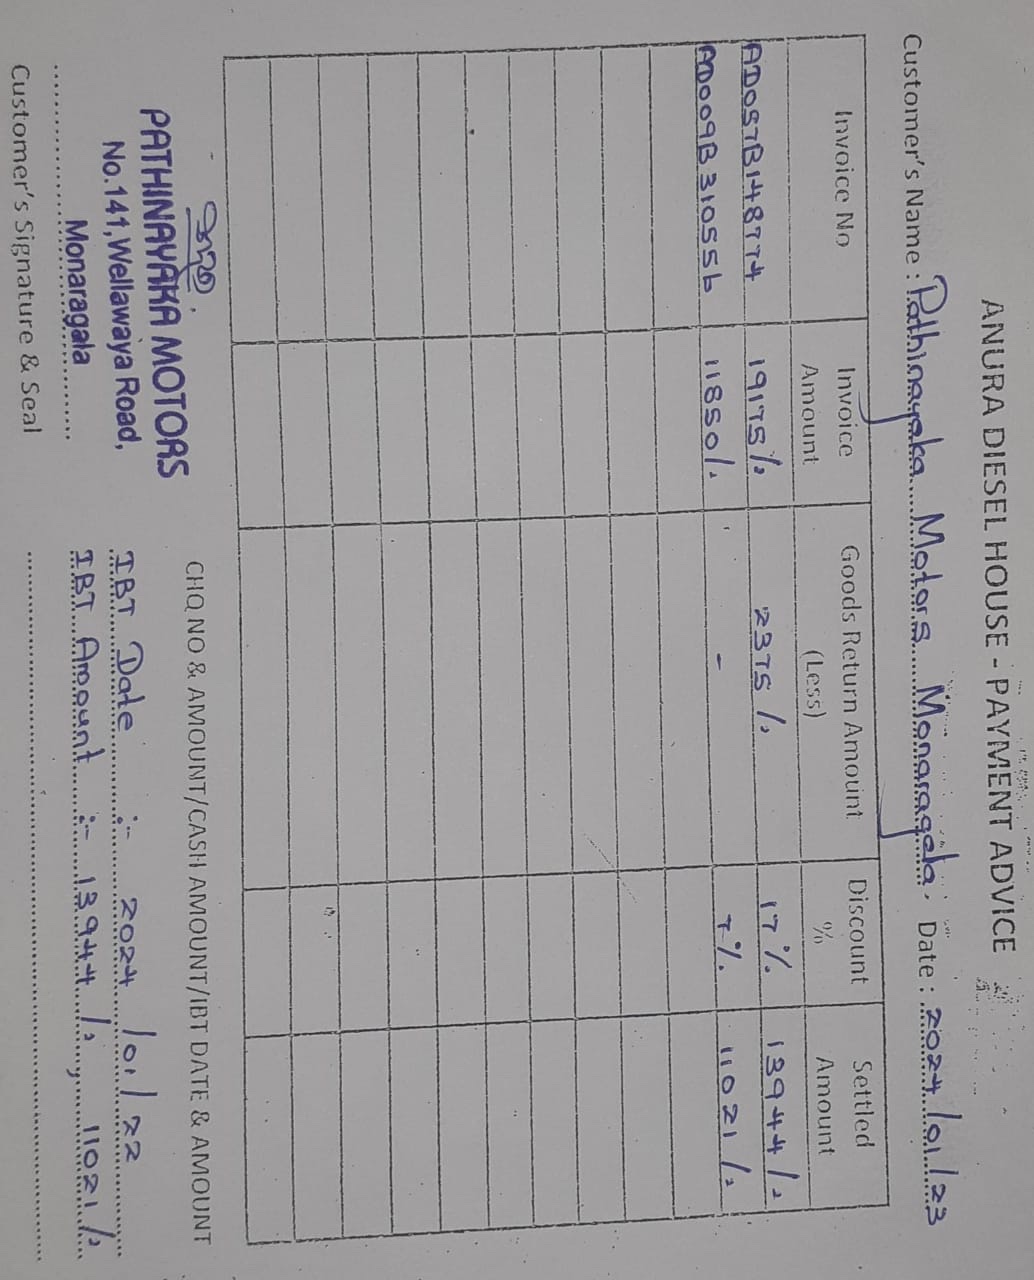 ANURA DIESEL HOUSE - PAYMENT ADVICE
Customer's Name : Pathinayaka Motors Monaragala. Date : 2024/01/23
Invoice No Invoice Amount Goods Return Amount (Less) Discount % Settled Amount
AD057B148774 19175/= 2375/= 17% 13944/=
AD009B310556 11850/= - 7% 11021/=
CHQ NO & AMOUNT/CASH AMOUNT/IBT DATE & AMOUNT
IBT Date :- 2024/01/22
IBT Amount :- 13944/=, 11021/=
PATHINAYAKA MOTORS
No.141, Wellawaya Road,
Monaragala
Customer's Signature & Seal